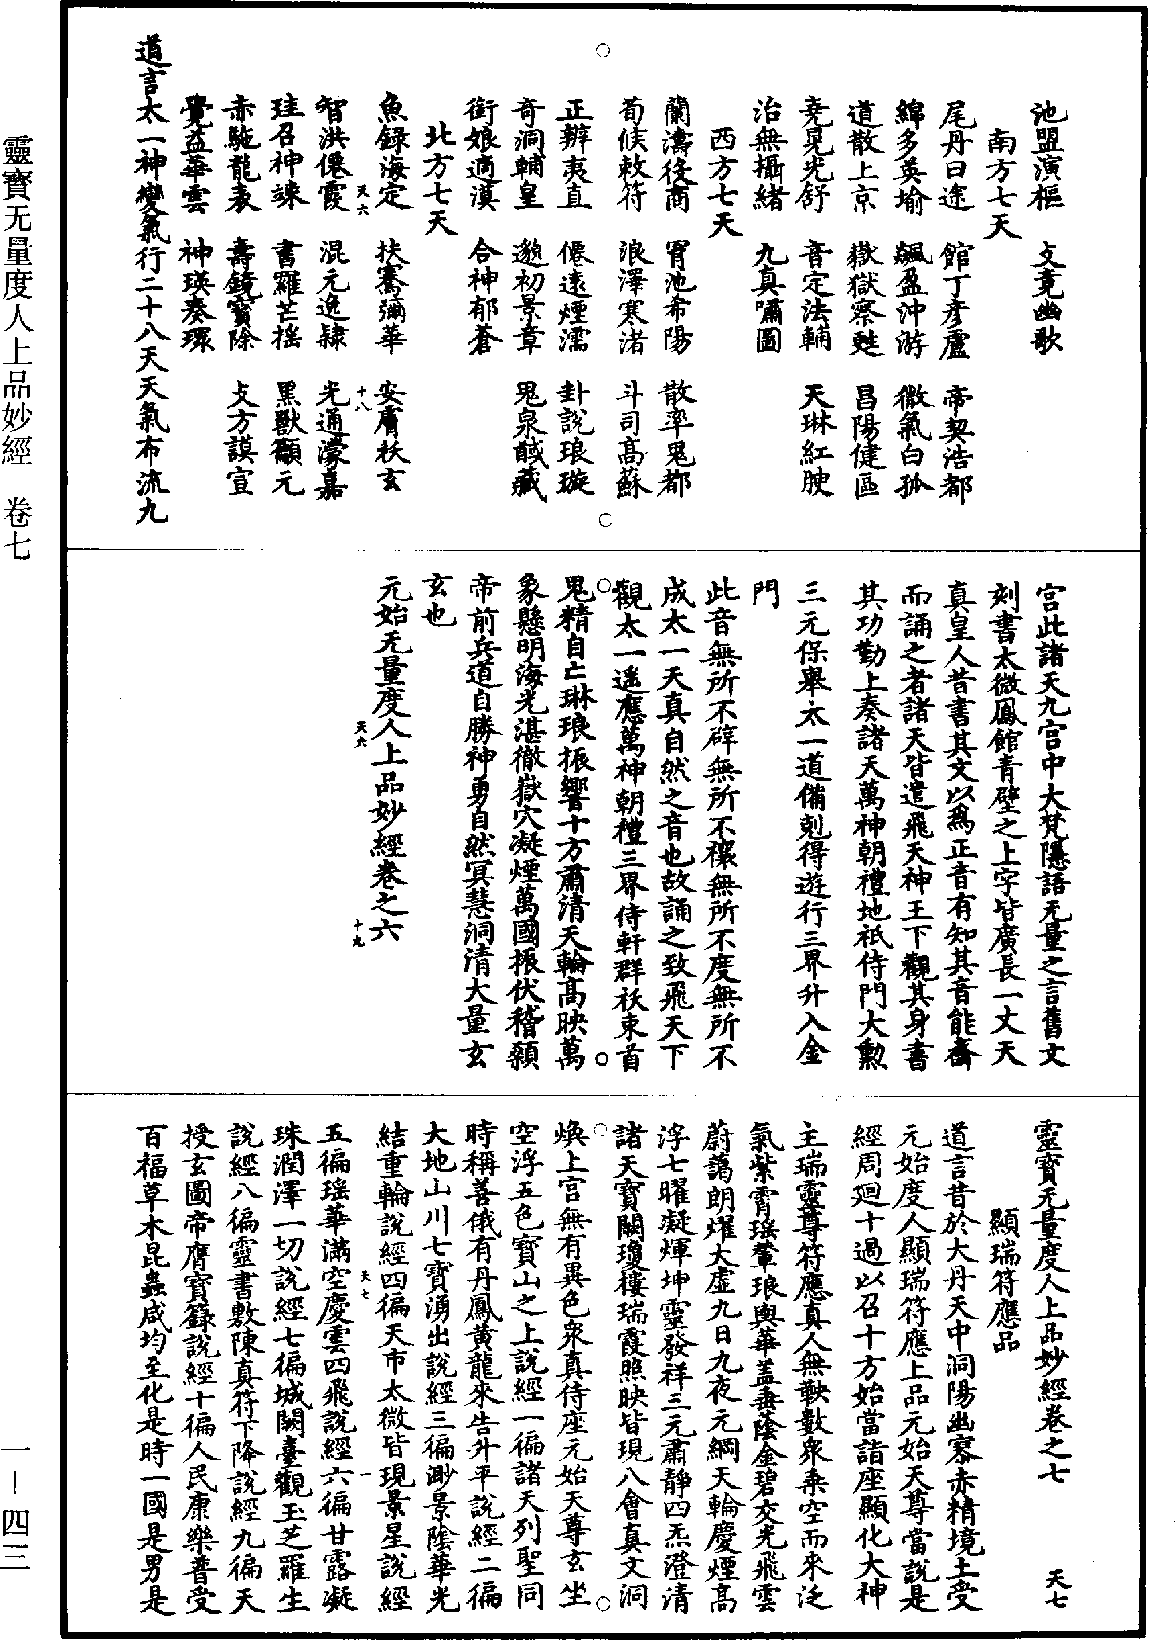 靈寶无量度人上品妙經　卷七
一—四三
池盟演樞　攴竟幽歌
南方七天
尾丹曰途　館丁彦廬　帝契浩都
綿多英瑜　飆盈沖游　微氣白狐
道散上京　嶽獄察甦　昌陽健區
堯晃光舒　音定法輔　天琳紅腴
治無攝緒　九真囑圖
西方七天
蘭濤役商　胃池希陽　散率鬼都
荀候敕符　浪澤寒渚　斗司高蘇
正辨夷直　僊遠煙濡　卦說琅璇
奇洞輔皇　邈初景章　鬼泉馘藏
街娘適漠　合神郁蒼
北方七天
魚録海定　扶騫彌華　安膺袄玄
天六　十八
智洪僊霞　混元逸隸　光通濛嘉
珪召神竦　書羅芒摇　黑獸顱元
赤駈龍表　壽鏡寶除　攴方謨宣
覺益華雲　神瑛奏環
道言太一神變氣行二十八天天氣布流九
宫此諸天九宫中大梵隱語无量之言舊文
刻書太微鳳館青壁之上字皆廣長一丈天
真皇人昔書其文以爲正音有知其音能齋
而誦之者諸天皆遣飛天神王下觀其身書
其功勤上奏諸天萬神朝禮地祇侍門大勲
三元保舉太一道備剋得遊行三界升入金
門
此音無所不辟無所不禳無所不度無所不
成太一天真自然之音也故誦之致飛天下
觀太一遥應萬神朝禮三界侍軒群袄束首
鬼精自亡琳琅振響十方肅清天輪高映萬
象懸明海光湛徹嶽穴凝煙萬國振伏稽顙
帝前兵道自勝神勇自然冥慧洞清大量玄
玄也
元始无量度人上品妙經卷之六
天六　十九
靈寶无量度人上品妙經卷之七　天七
顯瑞符應品
道言昔於大丹天中洞陽幽寥赤精境上受
元始度人顯瑞符應上品元始天尊當說是
經周廻十過以召十方始當詣座顯化大神
主瑞靈尊符應真人無鞅數衆乘空而來泛
氣紫霄瑶輦琅輿華蓋垂蔭金碧交光飛雲
蔚藹朗燿大虚九日九夜元綱天輪慶煙高
浮七曜凝煇坤靈發祥三元肅靜四炁澄清
諸天寶闕瓊樓瑞霞照映皆現八會真文洞
焕上宫無有異色衆真侍座元始天尊玄坐
空浮五色寶山之上說經一徧諸天列聖同
時稱善俄有丹鳳黄龍來告升平說經二徧
大地山川七寶湧出說經三徧渺景陰華光
結重輪說經四徧天市太微皆現景星說經
天七　一
五徧瑶華滿空慶雲四飛說經六徧甘露凝
珠潤澤一切說經七徧城闕臺觀玉芝羅生
說經八徧靈書敷陳真符下降說經九徧天
授玄圖帝膺寶籙說經十徧人民康樂普受
百福草木昆蟲咸均至化是時一國是男是